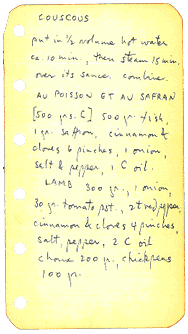 COUSCOUS
put in 1/2 volume hot water
ca. 10 min., then steam 15 min.
over its sauce. combine.
AU POISSON ET AU SAFRAN
[500 grs. C] 500 gr. fish,
1 gr. saffron, cinnamon &
cloves 6 pinches, 1 onion,
salt & pepper, 1 C oil.
LAMB 300 gr., 1 onion,
30 gr. tomato pst., 2t red pepper,
cinnamon & cloves 4 pinches,
salt, pepper, 2 C oil
200 gr, chickpeas
100 gr.